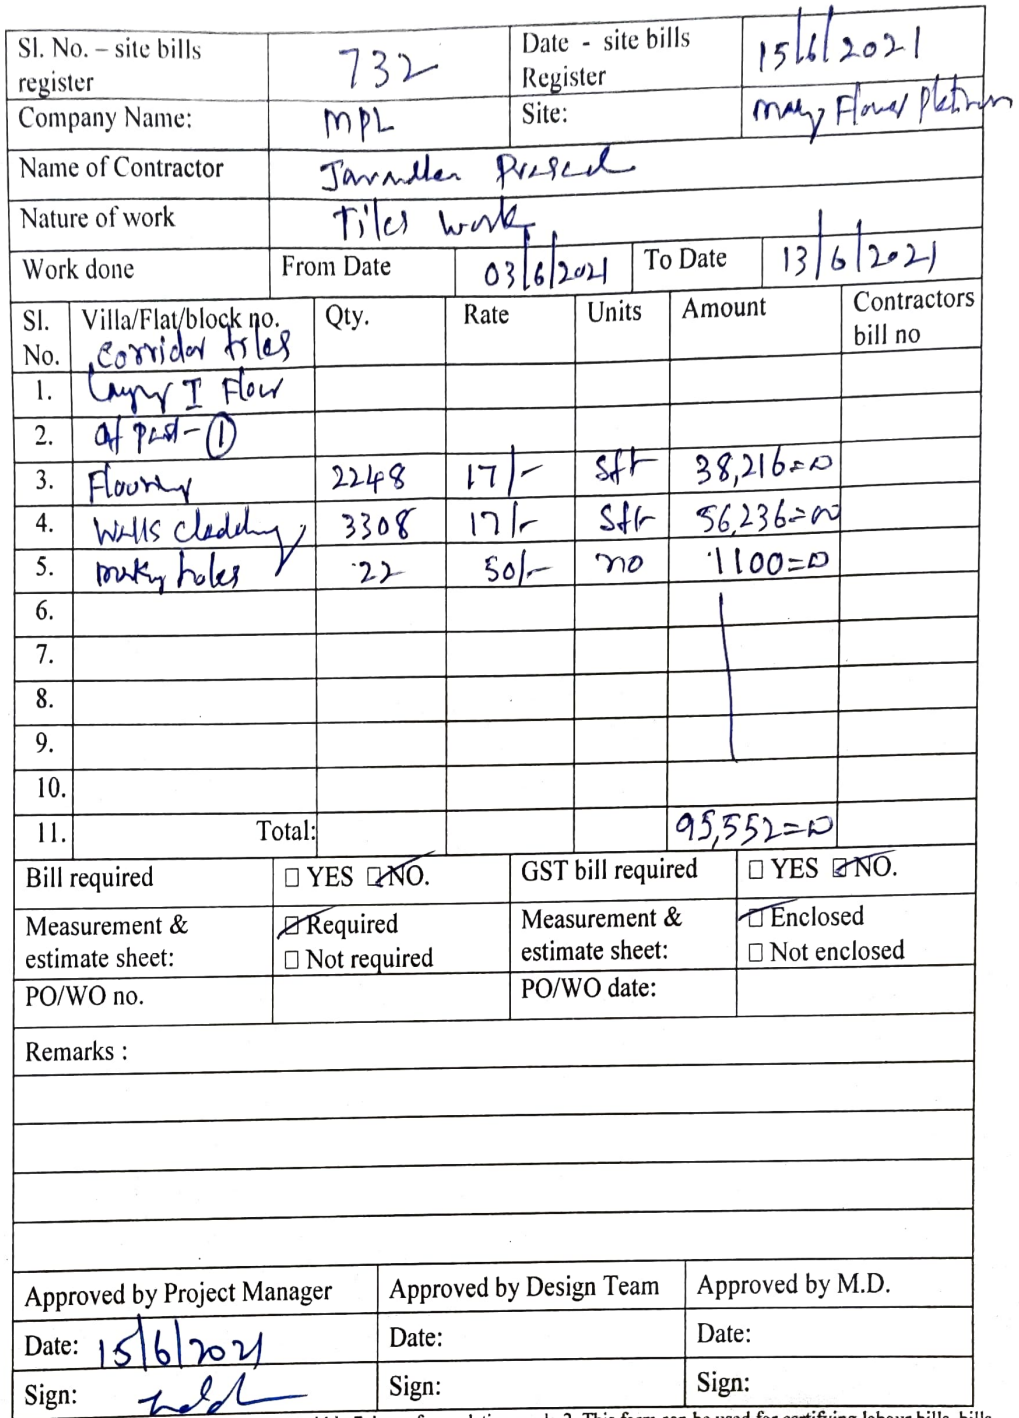 Sl. No. – site bills register 732 Date - site bills Register 15/6/2021
Company Name: MPL Site: May Flower Platinum
Name of Contractor Prasad
Nature of work Tiles work
Work done From Date 03/6/2021 To Date 13/6/2021
Sl. No. Villa/Flat/block no. Qty. Rate Units Amount Contractors bill no
Corridor tiles
1. Laying I Floor
2. of part - ①
3. Flooring 2248 17/- Sft 38,216=00
4. Walls cladding 3308 17/- Sft 56,236=00
5. making holes 22 50/- no 1100=00
6.
7.
8.
9.
10.
11. Total: 95,552=00
Bill required □ YES □ NO. GST bill required □ YES □ NO.
Measurement & estimate sheet: □ Required □ Not required Measurement & estimate sheet: □ Enclosed □ Not enclosed
PO/WO no. PO/WO date:
Remarks :
Approved by Project Manager Approved by Design Team Approved by M.D.
Date: 15/6/2021 Date: Date:
Sign: Sign: Sign: